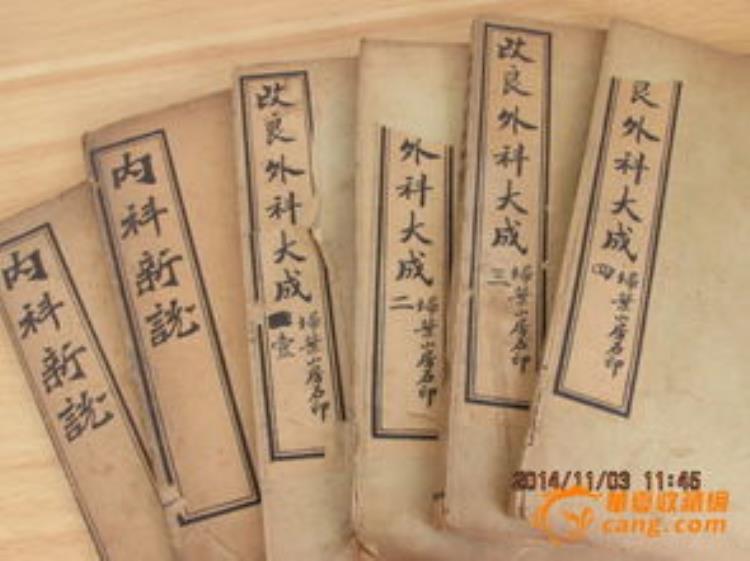 内科新説
内科新説
改良外科大成 壹 埽葉山房石印
外科大成 二 埽葉山房石印
改良外科大成 三 埽葉山房石印
良外科大成 四 埽葉山房石印
2014/11/03 11:45
华夏收藏网
cang.com